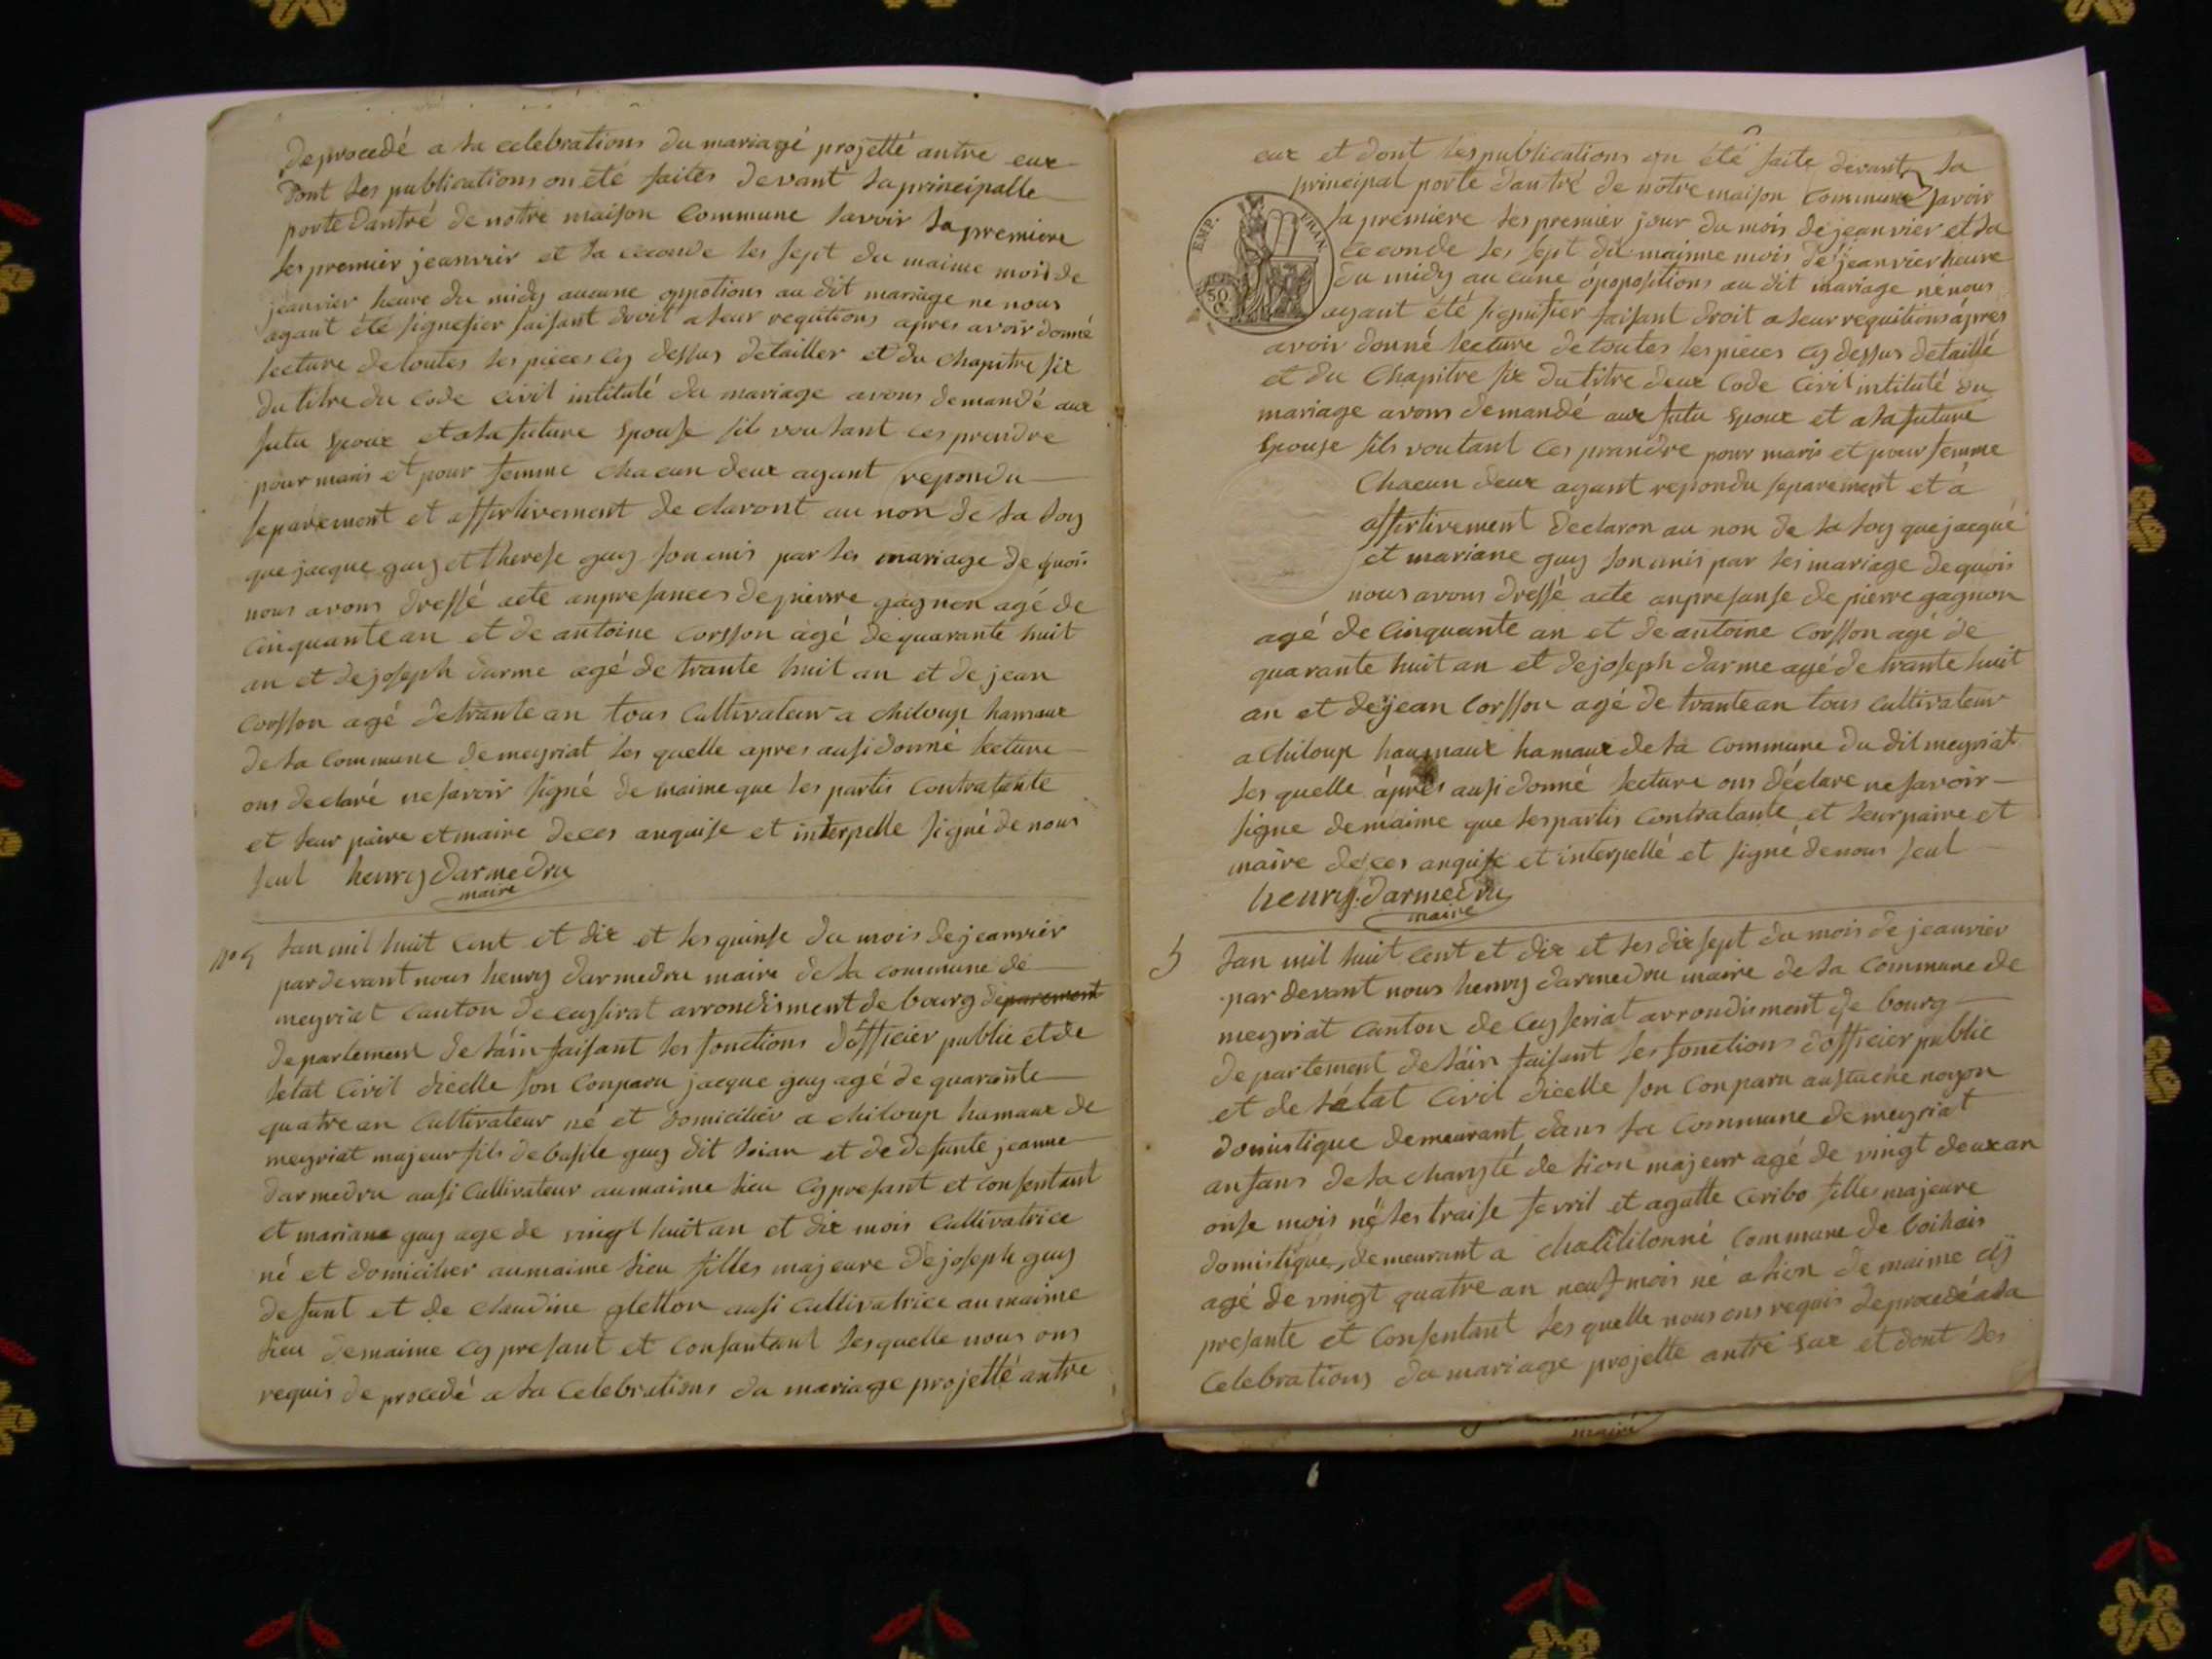 de procedé a la celebrations du mariagé projetté antre eux
Dont les publications on été faites devant la principalle
porte dantré de notre maison Commune savoir la premiere
les premier jeanvier et la ceconde les sept du maime mois de
jeanvier heure du midy aucune oppotions au dit mariage ne nous
ayant été signefier faisant droit a leur requitions apres avoir donné
lecture de toutes les pieces cy dessus detailler et du chapitre six
du titre du Code Civil intitulé du mariage avons demandé aux
futu Epoux et a la future Epouse sils voulant ces prendre
pour maris et pour femme chacun deux ayant repondu
separement et affirtivement declaront au non de la loy
que jacque guy et therese guy son unis par les mariage de quois
nous avons dressé acte anpresances de pierre gagnon agé de
Cinquante an et de antoine Corsson agé de quarante huit
an et de joseph darme agé de trante huit an et de jean
Corsson agé de trante an tous Cultivateur a chiloup hamaux
de la Commune de meyriat les quelle apres ausi donné lecture
ons declaré ne savoir signé de maime que les partis Contratante
et leur paire et maire de ces anquise et interpelle signé de nous
seul henry darmedru
maire
no 4 Lan mil huit Cent et dix et les quinse du mois de jeanvier
par devant nous henry darmedru maire de la commune de
meyriat Canton de ceysirat arrondisment de bourg deparement
departement de láin faisant les fonctions dófficier public et de
letat Civil dicelle son Conparu jacque guy agé de quarante
quatre an Cultivateur né et domicilier a chiloup hamaux de
meyriat majeur fils de basile guy dit et de defunte jeanne
darmedru ausi Cultivateur au maime lieu Cy presant et Consentant
et mariane guy age de vingt huit an et dix mois Cultivatrice
né et domicilier au maime lieu filles majeure de joseph guy
defunt et de claudine gletton ausi Cultivatrice au maime
lieu demaime Cy presant et Consantant les quelle nous ons
requis de procedé a la Celebrations du mariage projetté antre
eux et dont les publications on été faite devant la
principal porte dantré de notre maison Commune savoir
EMP. FRAN.
50 C.
la premiere les premier jour du mois de jeanvier et la
ceconde les sept du maimme mois de jeanvier heure
du midy aucune ópopositions au dit mariage ne nous
ayant été signifier faisant droit a leur requitions ápres
avoir donné lecture de toutes les pieces Cy dessus detaillé
et du Chapitre six du titre deux Code Civil intitulé du
mariage avons demandé aux futu Epoux et a la future
Epouse sils voulant ces prandre pour maris et pour femme
Chacun deux ayant repondu separement et á
affirtivement declaron au non de la loy que jacque
et mariane guy son unis par les mariage de quois
nous avons dressé acte anpresanse de pierre gagnon
agé de Cinquante an et de antoine Corsson agé de
quarante huit an et de joseph darme agé de trante huit
an et de jean Corsson agé de trante an tous Cultivateur
a chiloup haumaux hamaux de la Commune du dit meyriat
les quelle ápres ausi donné lecture ons déclare ne savoir
signe demaime que les partis Contratante et leur paire et
maire de ces anquise et interpellé et signé de nous seul
henry darmedru
maire
5 Lan mil huit Cent et dix et les dix sept du mois de jeanvier
par devant nous henry darmedru maire de la Commune de
meyriat Canton de Ceyseriat arrondisment de bourg
departement de láin faisant les fonctions dófficier public
et de létat Civil dicelle son Conparu austache noyon
domistique demeurant dans la Commune de meyriat
anfans de la charyté de lion majeur agé de vingt deux an
onse mois né les traise fevril et agatte Ceribo filles majeure
domistique demeurant a chatilionné Commune de boihais
agé de vingt quatre an neuf mois né a lion demaime cÿ
presante et Consentant les quelle nous ons requis de procedé a la
Celebrations du mariage projette antre eux et dont les
maire